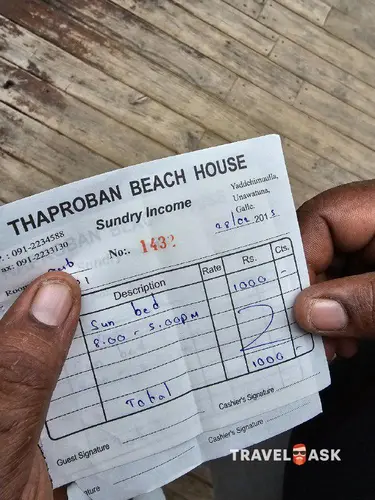 THAPROBAN BEACH HOUSE
Sundry Income
Yaddehimulla,
Unawatuna,
Galle.
: 091-2234588
ax: 091-2233130
No:. 1432
28/02 201
Room
Description Rate Rs. Cts.
Sun bed 1000 -
8.00 - 5.00pm
Total 1000 -
Guest Signature
Cashier's Signature
Cashier's Signature
nature
TRAVEL ASK